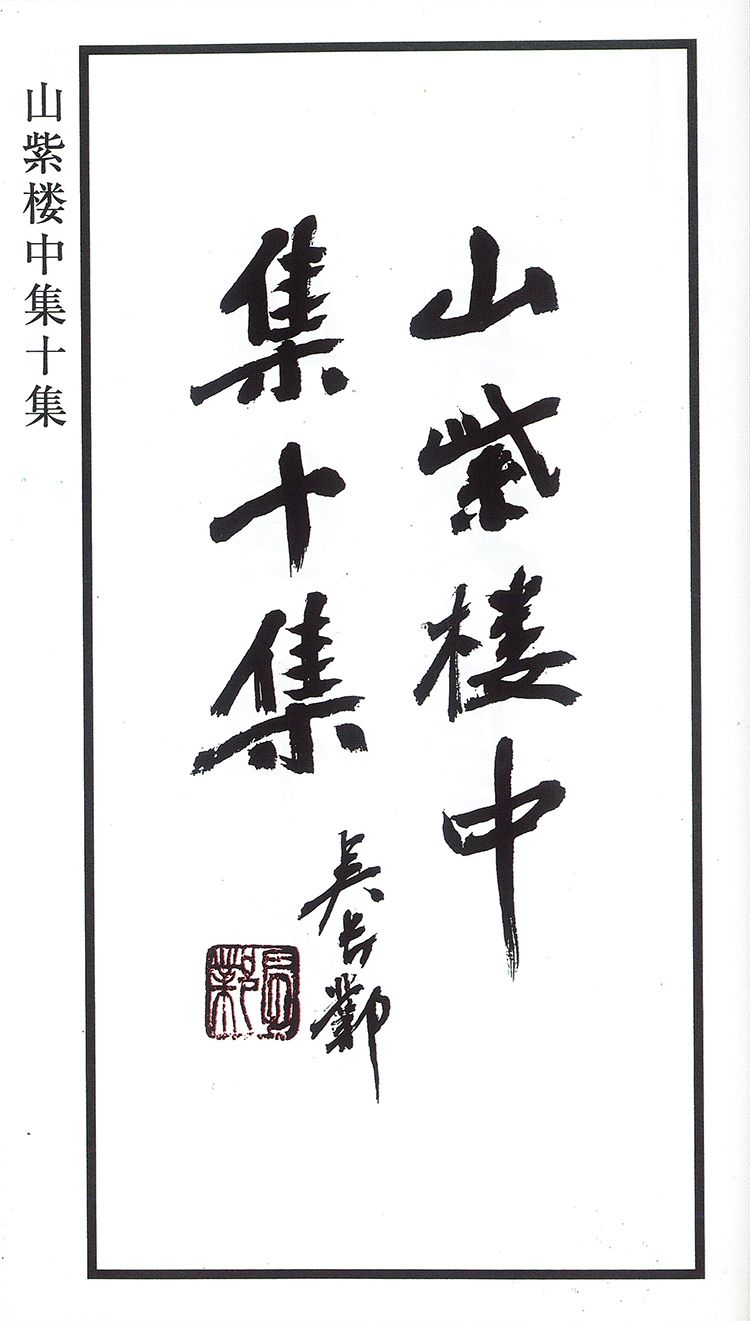 山紫楼中集十集
山紫楼中
集十集
吴长邺